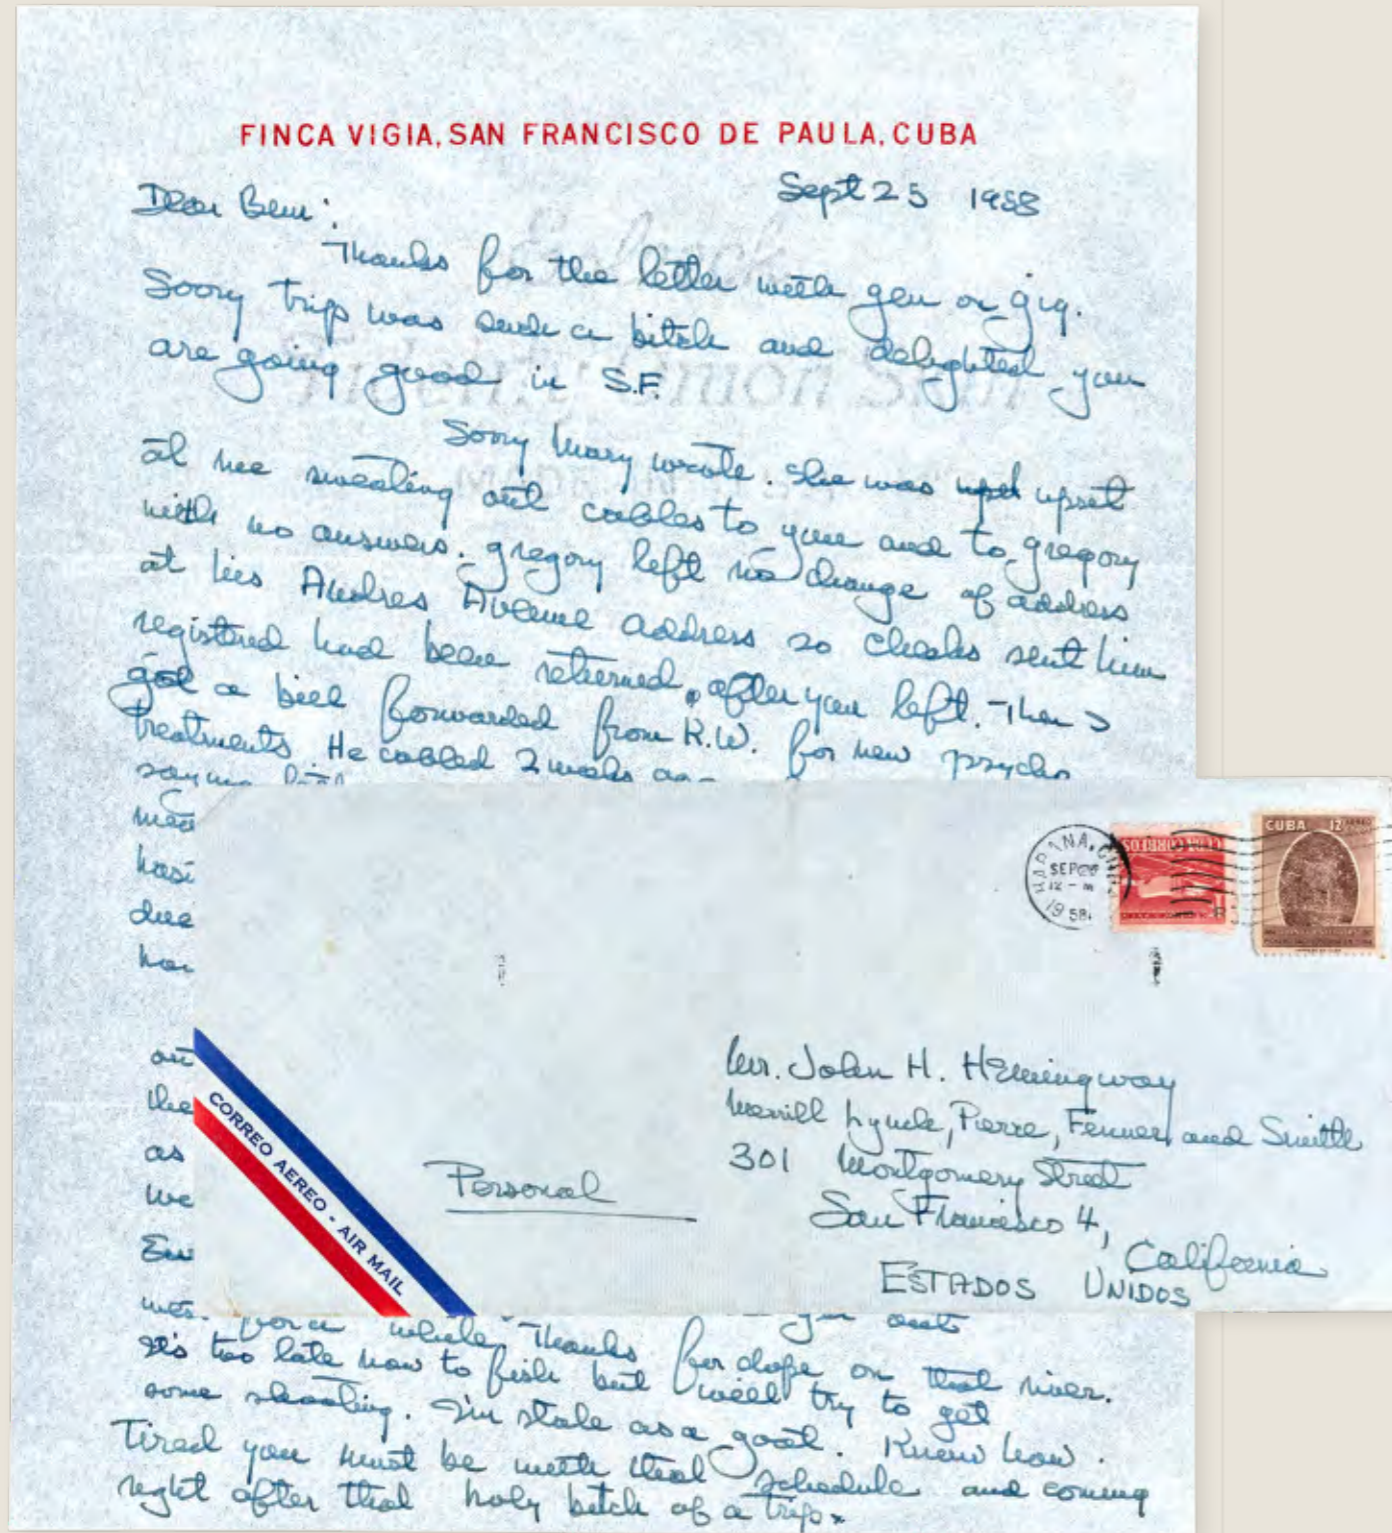 FINCA VIGIA, SAN FRANCISCO DE PAULA, CUBA
Sept 25 1958
Dear Bum:
Thanks for the letter with gen on gig.
Soory trip was such a bitch and delighted you
are going good in S.F.
Sorry Mary wrote. She was upset
at me sweating out cables to you and to gregory
with no answers. gregory left no change of address
at his Andres Avenue address so checks sent him
registered had been returned, after you left. Then I
got a bill forwarded from K.W. for new psycho
treatments. He cabled 2 weeks
due
out
the
as
we
for a while. Thanks for dope on that river.
Its too late now to fish but will try to get
some shooting. I'm stale as a goat. Know how
Tired you must be with that schedule and coming
right after that holy bitch of a trip.
HABANA, CUBA
SEP 26
12 - M
1958
CUBA CORREOS
CUBA 12
CORREO AEREO - AIR MAIL
Personal
Mr. John H. Hemingway
Merrill Lynch, Pierre, Fenner and Smith
301 Montgomery Street
San Francisco 4,
California
ESTADOS UNIDOS